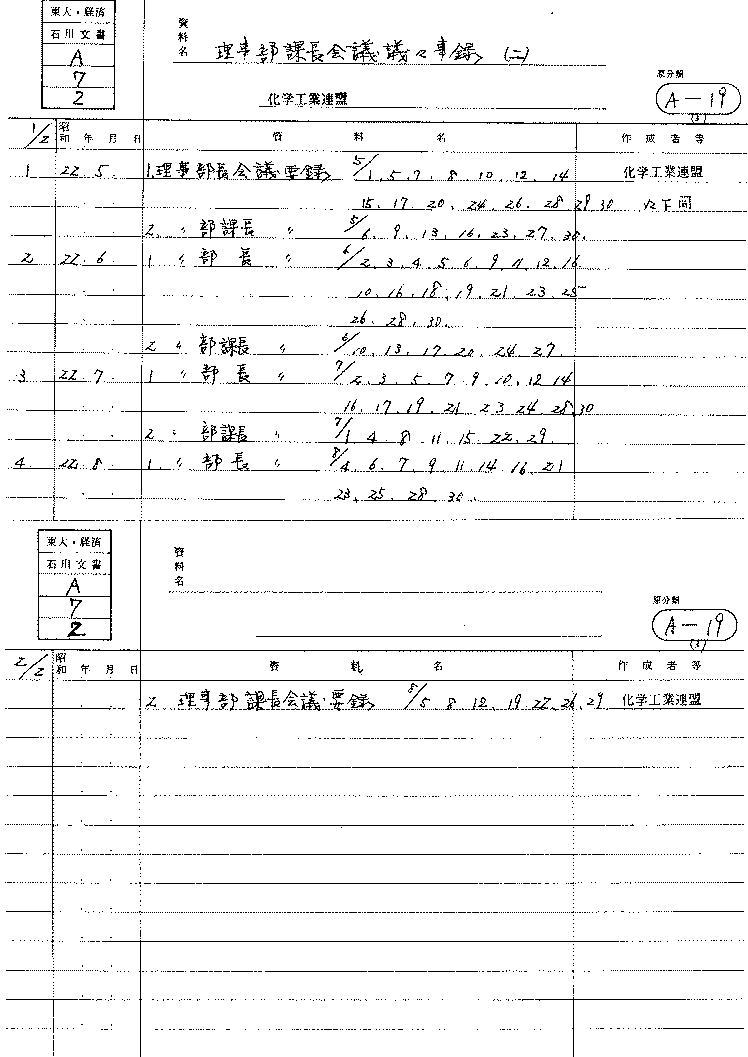 東大・経済
石川文書
A
7
2
資料名
理事部課長会議議々事録 (二)
化学工業連盟
原分類
A-19
(3)
1/2 昭和 年 月 日 資料名 作成者等
1 22. 5. 1. 理事部長会議要録 5/1. 5. 7. 8 10. 12. 14 化学工業連盟
15. 17. 20. 24. 26. 28 29 30 以下同
2. 〃 部課長 〃 5/6. 9. 13. 16. 23. 27. 30.
2 22. 6. 1 〃 部長 〃 6/2. 3. 4. 5 6. 9 11. 12. 16
10. 16. 18. 19. 21. 23. 25
26. 28. 30.
2 〃 部課長 〃 6/10. 13. 17. 20. 24. 27.
3 22. 7 1 〃 部長 〃 7/2. 3. 5. 7. 9. 10. 12 14
16. 17. 19. 21 23 24 28. 30
2 〃 部課長 〃 7/1 4. 8 11. 15. 22. 29.
4. 22. 8 1. 〃 部長 〃 8/4 6. 7. 9. 11. 14. 16. 21
23. 25. 28. 30.
東大・経済
石川文書
A
7
2
資料名
原分類
A-19
(3)
2/2 昭和 年 月 日 資料名 作成者等
2 理事部課長会議要録 8/5 8 12. 19 22. 26. 29 化学工業連盟